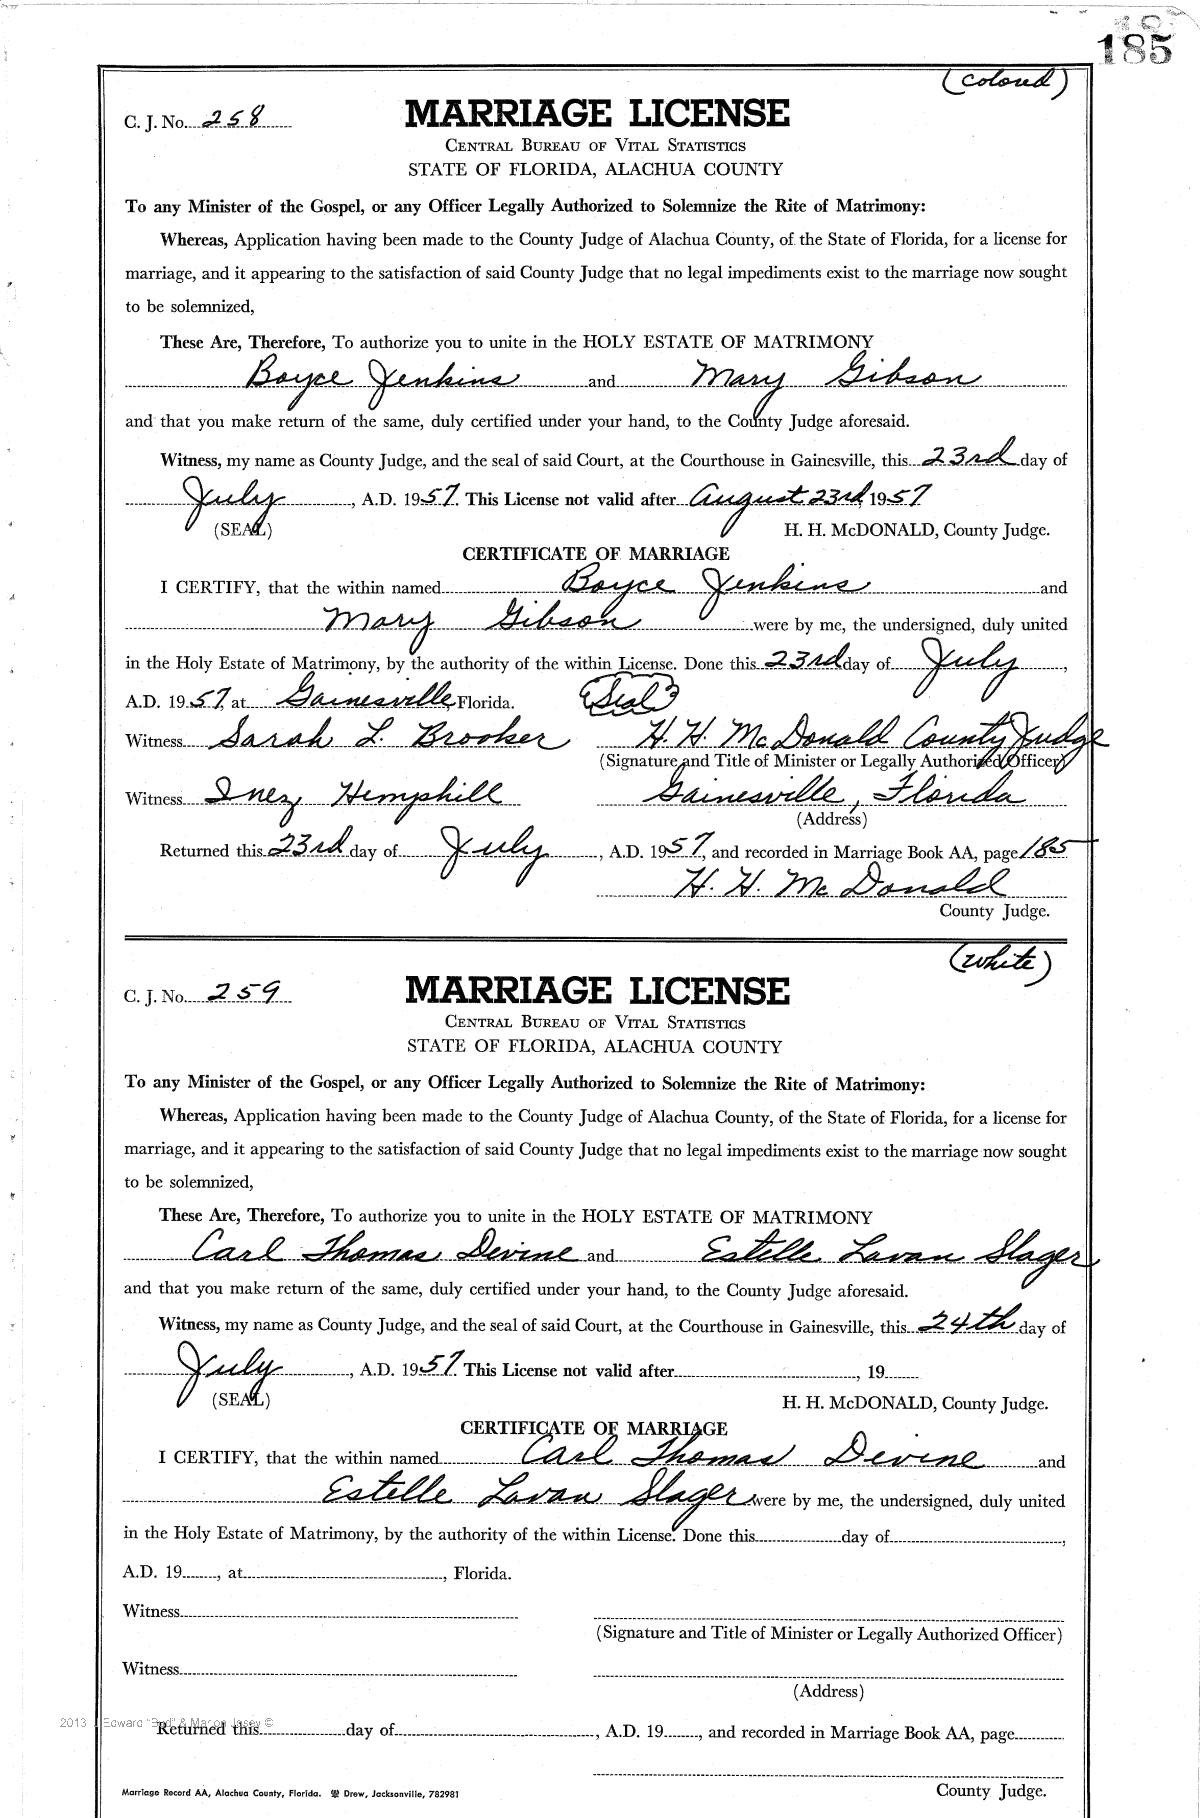 185
(colored)
C. J. No. 258
MARRIAGE LICENSE
CENTRAL BUREAU OF VITAL STATISTICS
STATE OF FLORIDA, ALACHUA COUNTY
To any Minister of the Gospel, or any Officer Legally Authorized to Solemnize the Rite of Matrimony:
Whereas, Application having been made to the County Judge of Alachua County, of the State of Florida, for a license for
marriage, and it appearing to the satisfaction of said County Judge that no legal impediments exist to the marriage now sought
to be solemnized,
These Are, Therefore, To authorize you to unite in the HOLY ESTATE OF MATRIMONY
Boyce Jenkins and Mary Gibson
and that you make return of the same, duly certified under your hand, to the County Judge aforesaid.
Witness, my name as County Judge, and the seal of said Court, at the Courthouse in Gainesville, this 23rd day of
July, A.D. 1957. This License not valid after August 23rd, 1957
(SEAL) H. H. McDONALD, County Judge.
CERTIFICATE OF MARRIAGE
I CERTIFY, that the within named Boyce Jenkins and
Mary Gibson were by me, the undersigned, duly united
in the Holy Estate of Matrimony, by the authority of the within License. Done this 23rd day of July,
A.D. 1957, at Gainesville, Florida. Seal
Witness Sarah L. Brooker H. H. McDonald County Judge
(Signature and Title of Minister or Legally Authorized Officer)
Witness Inez Hemphill Gainesville, Florida
(Address)
Returned this 23rd day of July, A.D. 1957, and recorded in Marriage Book AA, page 185
H. H. McDonald
County Judge.
(white)
C. J. No. 259
MARRIAGE LICENSE
CENTRAL BUREAU OF VITAL STATISTICS
STATE OF FLORIDA, ALACHUA COUNTY
To any Minister of the Gospel, or any Officer Legally Authorized to Solemnize the Rite of Matrimony:
Whereas, Application having been made to the County Judge of Alachua County, of the State of Florida, for a license for
marriage, and it appearing to the satisfaction of said County Judge that no legal impediments exist to the marriage now sought
to be solemnized,
These Are, Therefore, To authorize you to unite in the HOLY ESTATE OF MATRIMONY
Carl Thomas Devine and Estelle Lavan Slager
and that you make return of the same, duly certified under your hand, to the County Judge aforesaid.
Witness, my name as County Judge, and the seal of said Court, at the Courthouse in Gainesville, this 24th day of
July, A.D. 1957. This License not valid after , 19
(SEAL) H. H. McDONALD, County Judge.
CERTIFICATE OF MARRIAGE
I CERTIFY, that the within named Carl Thomas Devine and
Estelle Lavan Slager were by me, the undersigned, duly united
in the Holy Estate of Matrimony, by the authority of the within License. Done this day of ,
A.D. 19 , at , Florida.
Witness
(Signature and Title of Minister or Legally Authorized Officer)
Witness
(Address)
2013 Edward "Bud" &
Returned this day of , A.D. 19 , and recorded in Marriage Book AA, page
County Judge.
Marriage Record AA, Alachua County, Florida. Drew, Jacksonville, 782981